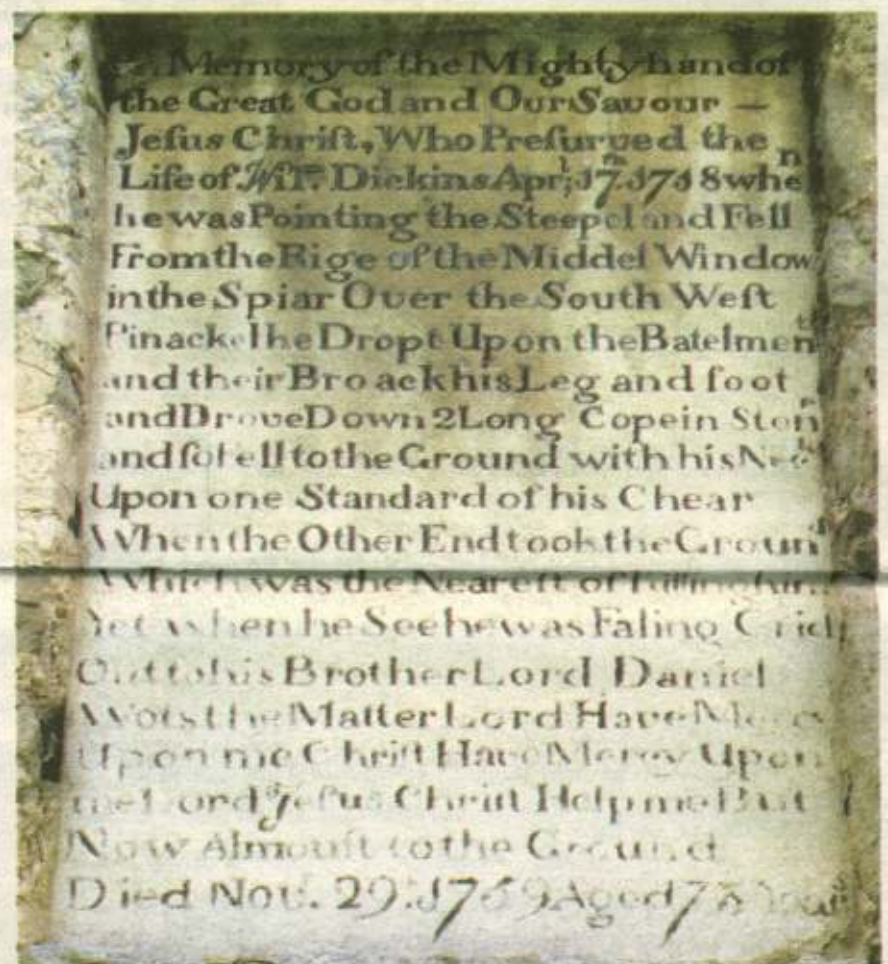 Memory of the Mighty hand of
the Great God and Our Savour —
Jeſus Chriſt, Who Preſurved the
Life of Wm. Dickins Aprl; 17 1718 when
he was Pointing the Steepel and Fell
From the Rige of the Middel Window
in the Spiar Over the South Weſt
Pinackel he Dropt Upon the Batelment
and their Broack his Leg and foot
and Drove Down 2 Long Copein Ston
and ſo fell to the Ground with his Neck
Upon one Standard of his Chear
When the Other End took the Ground
Which was the Neareſt of killing him
Yet when he See he was Faling Crid
Out to his Brother Lord Daniel
Wots the Matter Lord Have Mercy
Upon me Chriſt Have Mercy Upon
me Lord Jeſus Chriſt Help me But
Now Almouſt to the Ground
Died Nov. 29. Aged Years